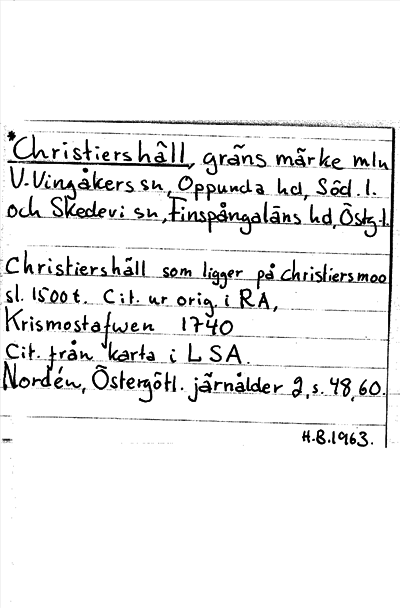 *Christiershäll, gräns märke mln
V. Vingåkers sn, Oppunda hd, Söd. l.
och Skedevi sn, Finspångaläns hd, Östg. l.
Christiershäll som ligger på christiersmoo
sl. 1500 t. Cit. ur orig. i RA,
Krismostafwen 1740
Cit. från karta i LSA.
Nordén, Östergötl. järnålder 2, s. 48, 60.
H.B. 1963.